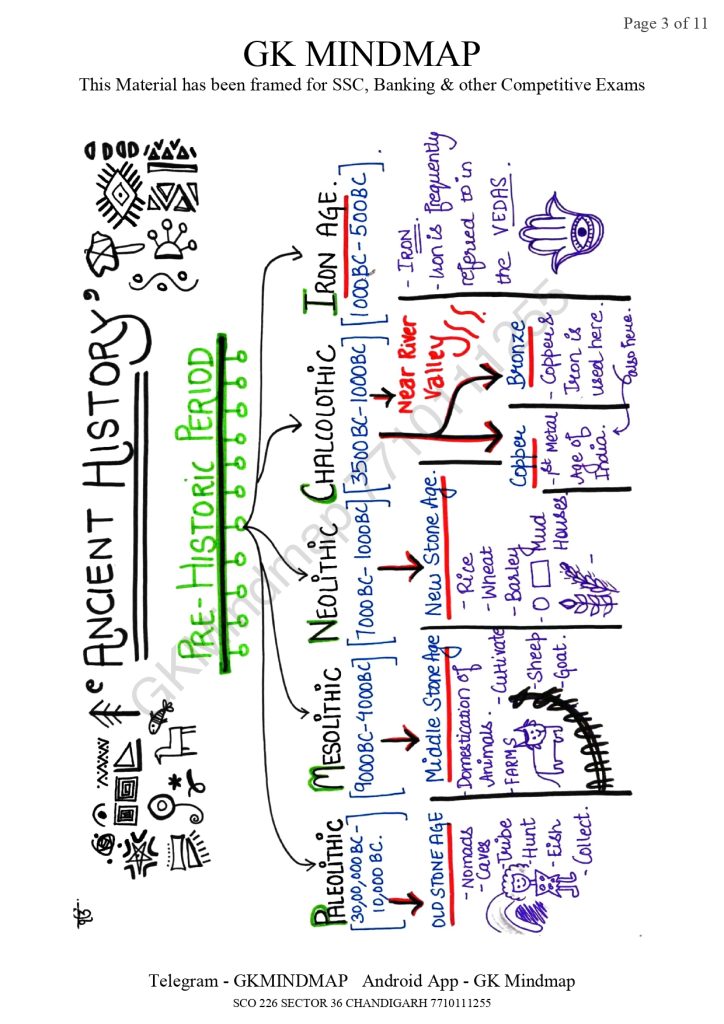 Page 3 of 11
GK MINDMAP
This Material has been framed for SSC, Banking & other Competitive Exams
"ANCIENT HISTORY"
PRE-HISTORIC PERIOD
PALEOLITHIC
[30,00,000BC-
10,000 BC.]
OLD STONE AGE
- Nomads
- Caves
- Tribe
- Hunt
- Fish
- Collect.
MESOLITHIC
[9000BC-4000BC]
Middle Stone Age
- Domestication of
Animals.
- Cultivate
- FARMS
- Sheep
- Goat.
NEOLITHIC
[7000BC-1000BC]
New Stone Age.
- Rice
- Wheat
- Barley
- Mud
Houses
CHALCOLOTHIC
[3500BC-1000BC]
Near River
Valley
Copper
- 1st Metal
Age of
India.
Bronze
- Copper &
Iron is
used here.
also true.
IRON AGE.
[1000BC-500BC]
- IRON
- Iron is frequently
referred to in
the VEDAS.
GKMindmap 7710111255
Telegram - GKMINDMAP Android App - GK Mindmap
SCO 226 SECTOR 36 CHANDIGARH 7710111255